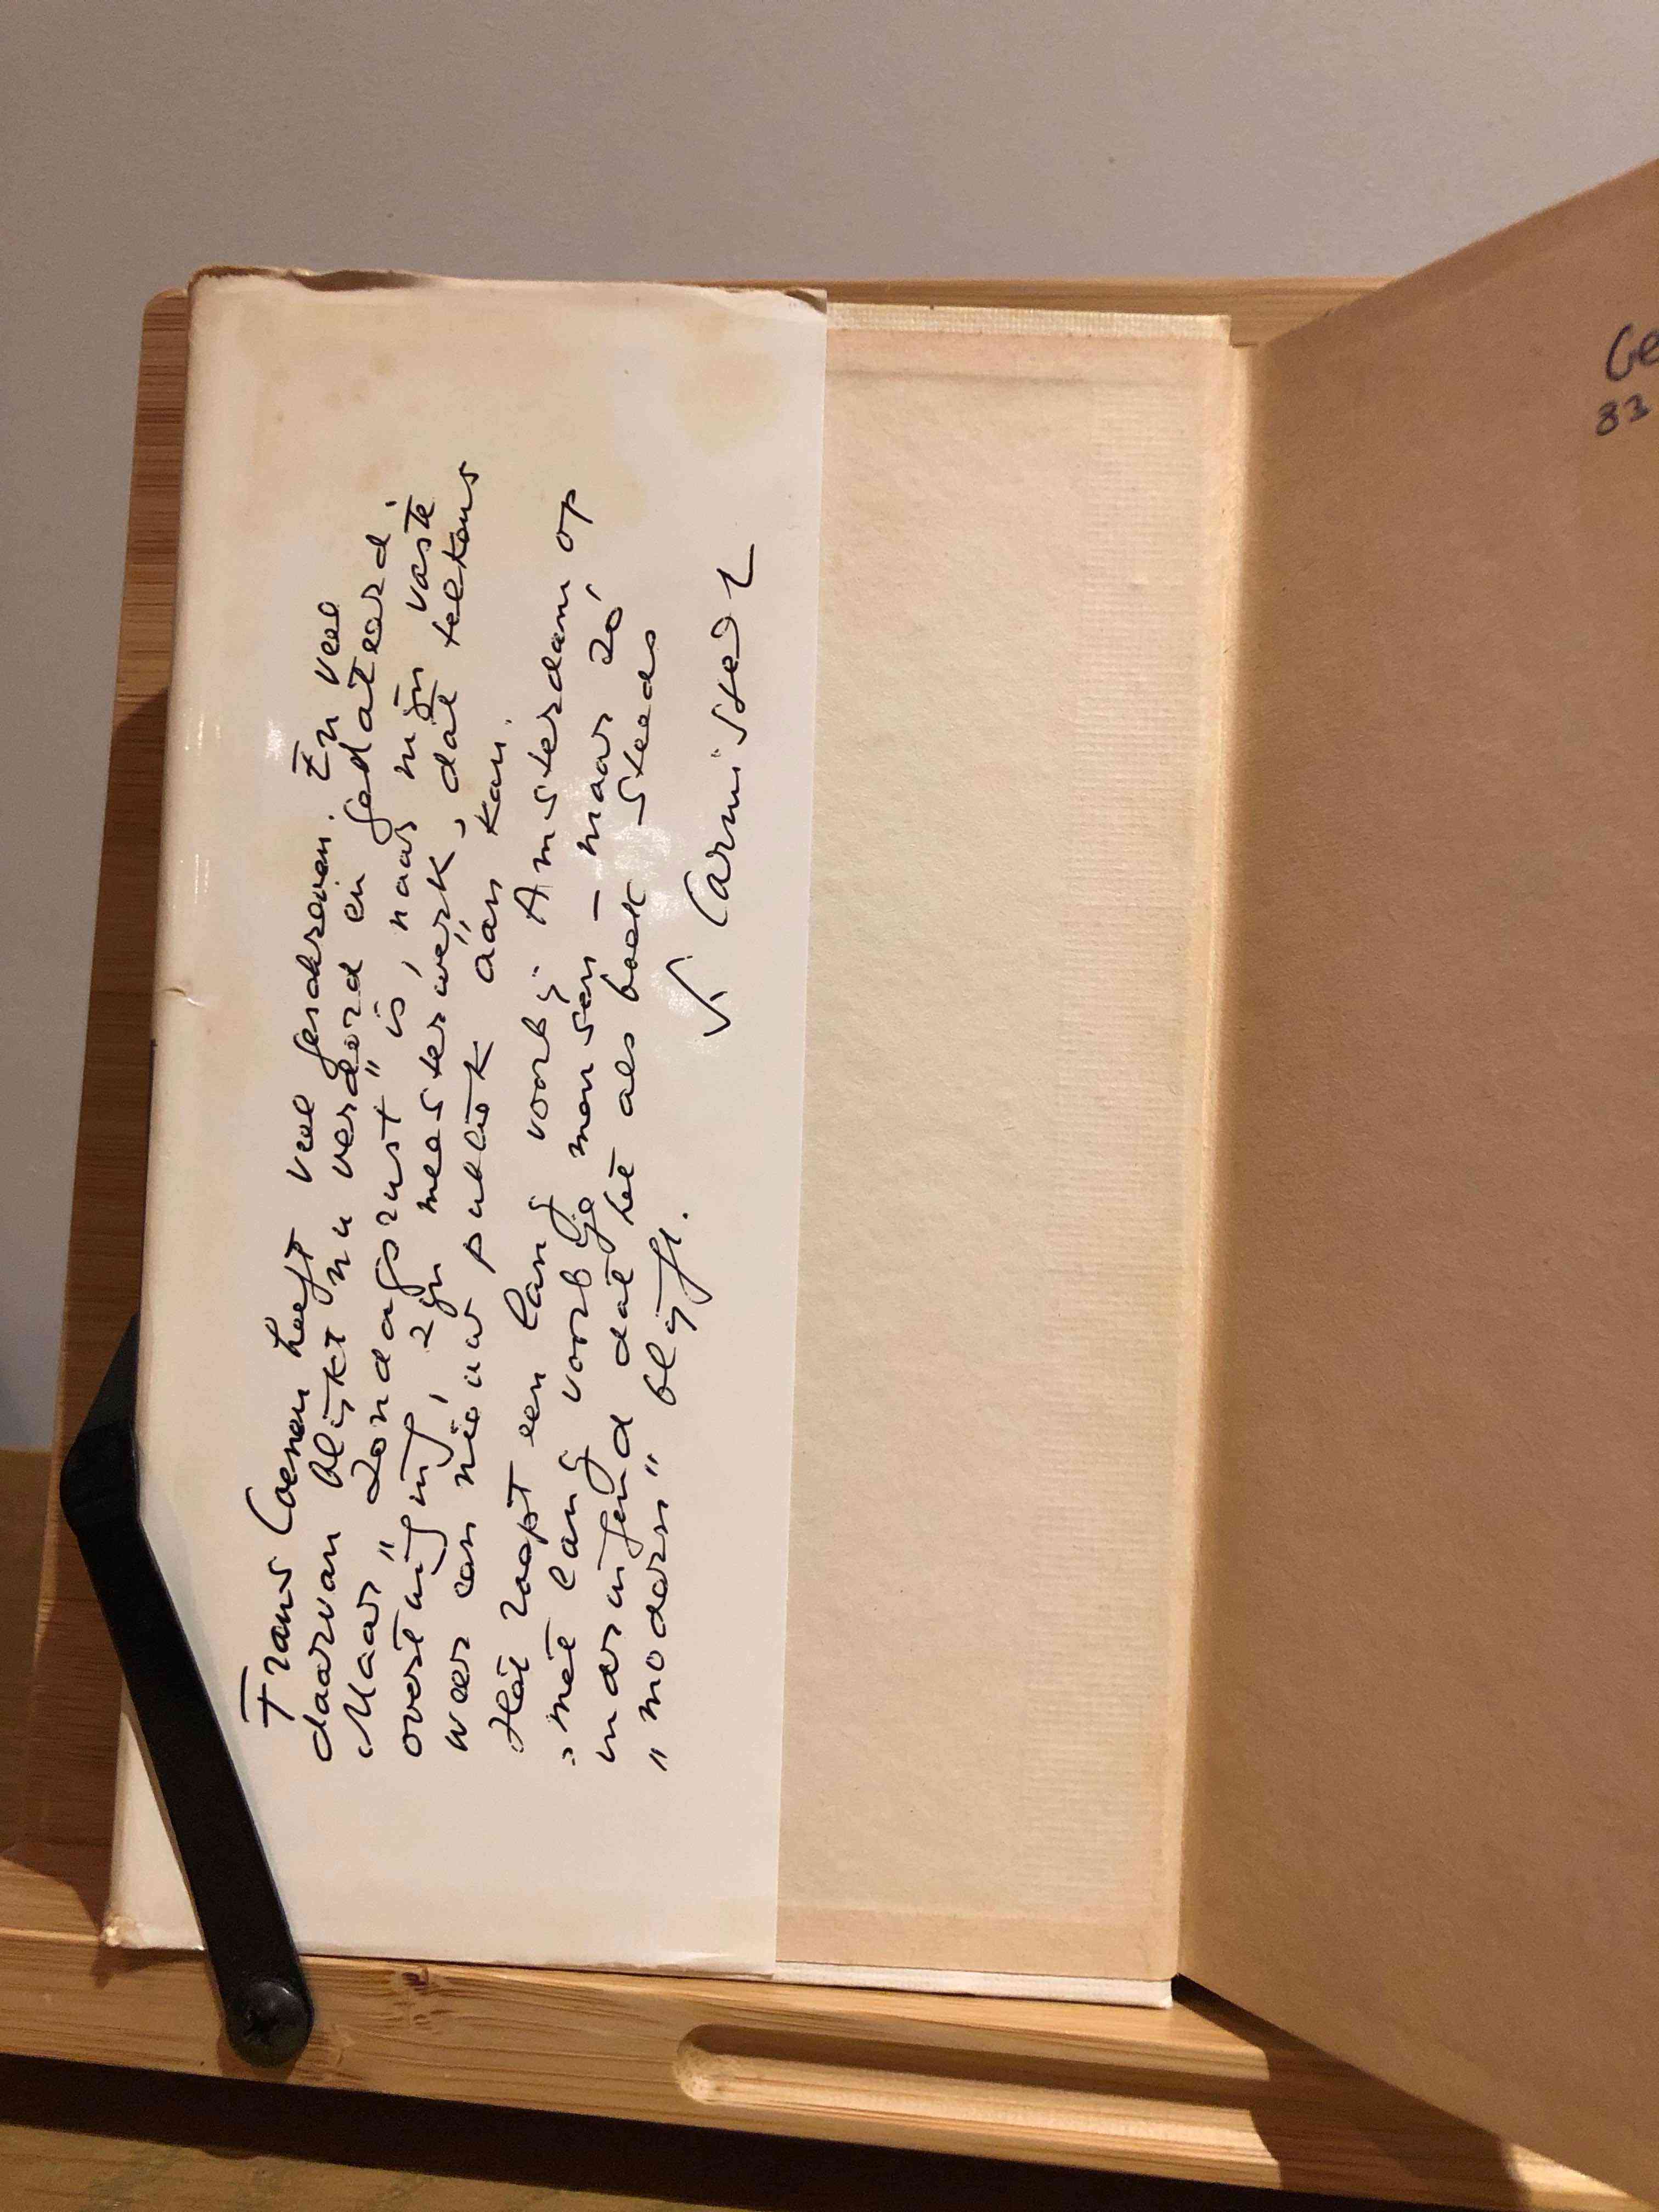 Frans Coenen heeft veel geschreven. En veel
daarvan blijkt nu verdord en gedateerd.
Maar „Zondagsrust" is, naar mijn vaste
overtuiging, zijn meesterwerk, dat telkens
weer een nieuw publiek aan kan.
Het roept een lang voorbij Amsterdam op
, met lang voorbije mensen – maar zó,
indringend dat het als boek steeds
„modern" blijft.
S. Carmiggelt
Ge
83